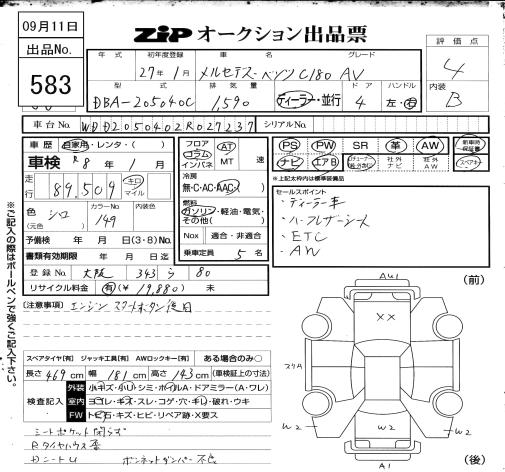 09月11日
出品No.
583
ZiP オークション出品票
評価点
4
内装
B
年式 初年度登録 車名 グレード
27年1月 メルセデス・ベンツ C180 AV
型式 排気量 ドア ハンドル
DBA-205040C 1,590 ディーラー・並行 4 左・右
車台No. WDD2050402R027237 シリアルNo.
車歴 自家用・レンタ・( )
車検 R8年1月
走行 89,509 キロ マイル
色 (元色) シロ カラーNo. 149 内装色
予備検 年 月 日(3・8)No.
書類有効期限 年 月 日迄
登録No. 大阪 343 ら 80
リサイクル料金 有(¥19,880) 未
フロア コラム インパネ AT MT 速
冷房 無・C・AC・AAC
燃料 ガソリン・軽油・電気・その他( )
Nox 適合・非適合
乗車定員 5名
PS PW SR 革 AW 新車時保証書
ナビ エアB 社外ナビ 社外AW
★上記太枠内は標準装備品
セールスポイント
・ディーラー車
・ハーフレザーシート
・ETC
・AW
[注意事項] エンジンスタートボタン後日
スペアタイヤ[有] ジャッキ工具[有] AWロックキー[有] ある場合のみ○
長さ 469cm 幅 181cm 高さ 143cm (車検証上の寸法)
検査記入
外装 小キズ・小U・シミ・ホイルA・ドアミラー(A・ワレ)
室内 ヨゴレ・キズ・スレ・コゲ・穴・キレ・破れ・ウキ
FW トビ石・キズ・ヒビ・リペア跡・X要ス
シートポケット閉らず
Rタイヤハウス歪
Dシート U ボンネットダンパー不良
※ご記入の際はボールペンで強くご記入下さい。
(前)
AU1
XX
W2
W2
W2
A1
(後)